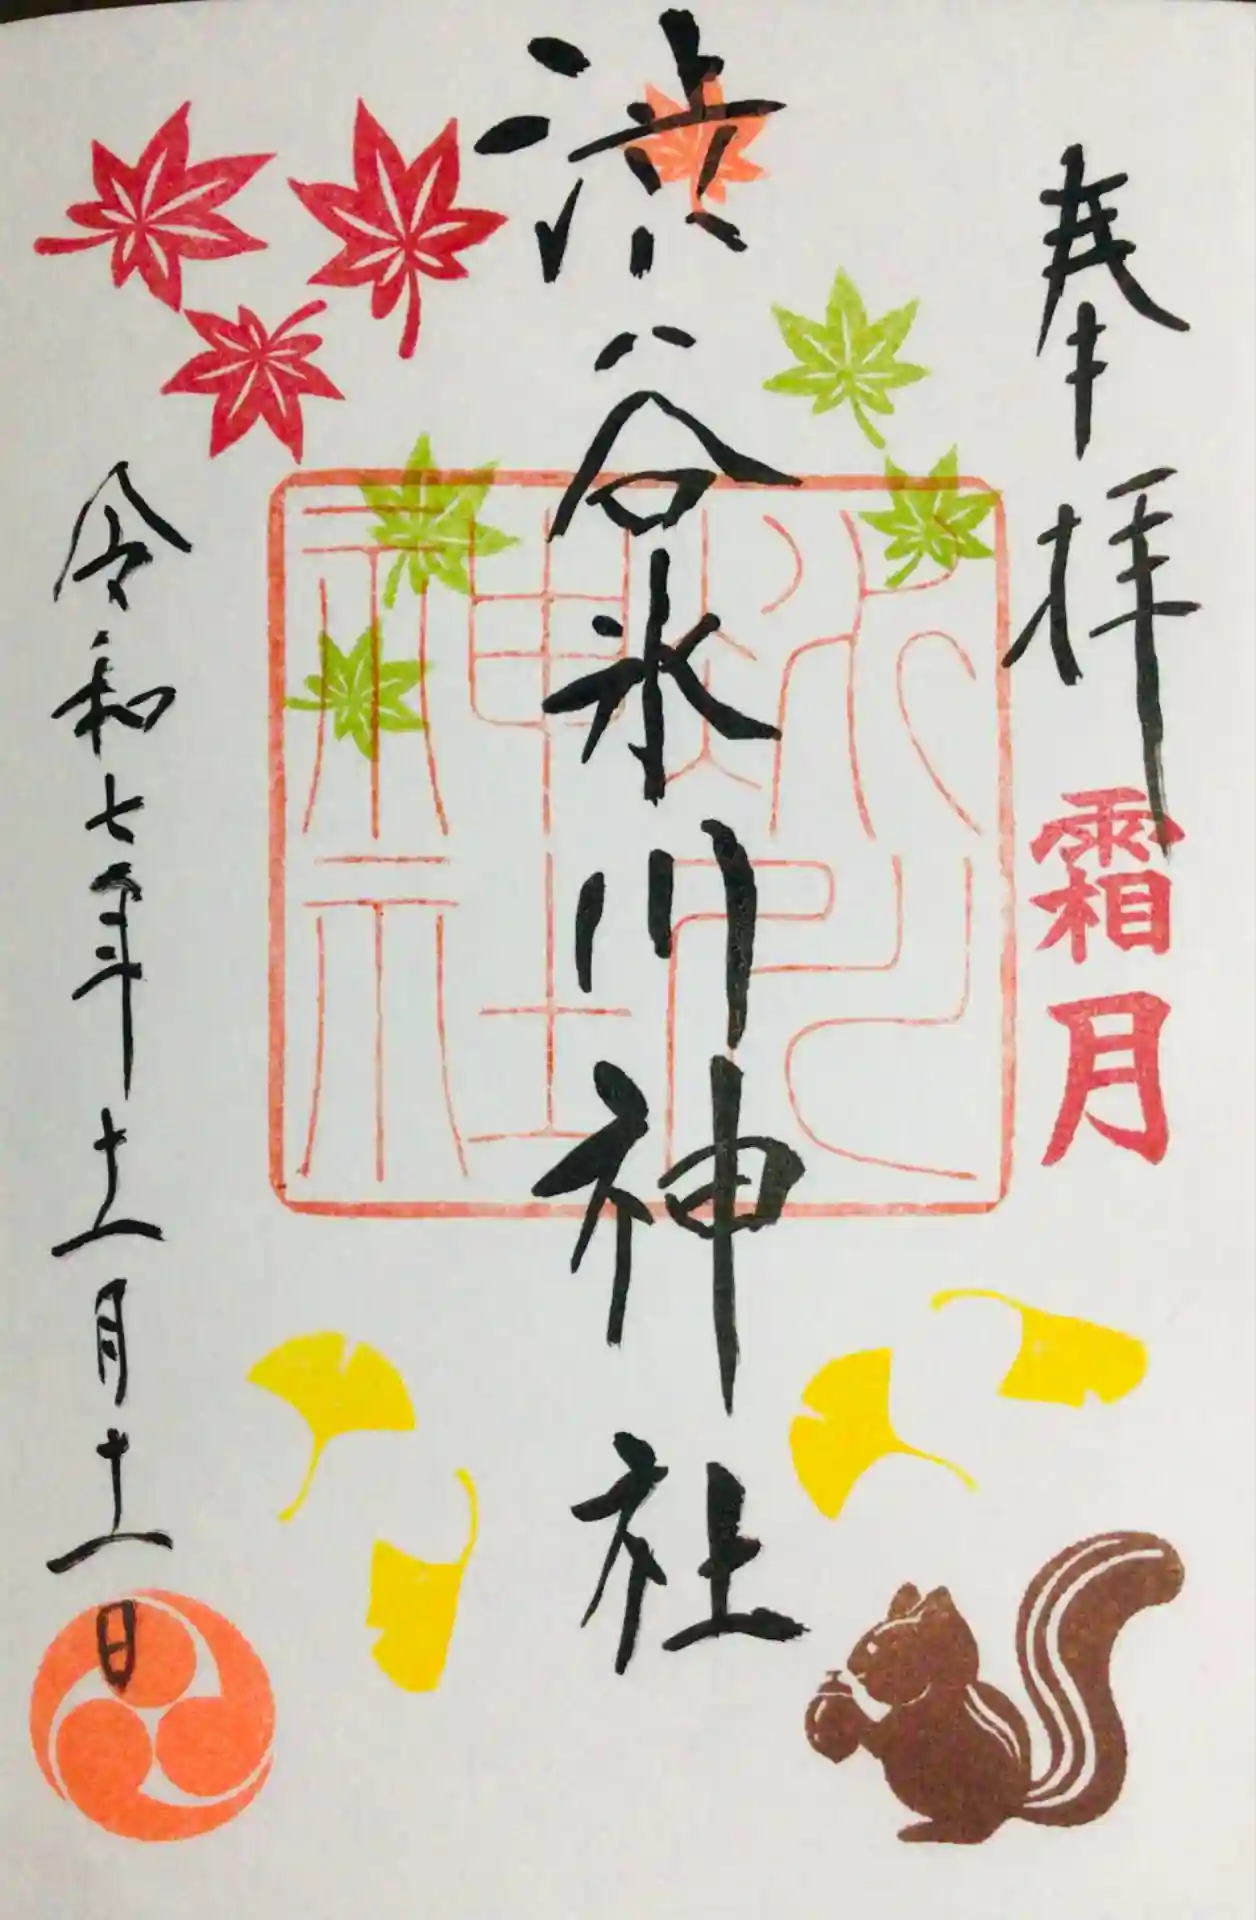 奉拝
霜月
渋谷氷川神社
氷川神社
令和七年十一月十一日